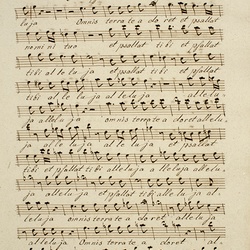 luja Omnis terra te a do ret et psallat
nomini tuo et psallat tibi et psallat
tibi alle lu ja et psallat tibi et psallat
tibi alle lu ja al le lu ja alle lu
ja alle lu ja omnis terra te a do ret alle lu
ja al le lu ja al le lu ja et psallat
tibi et psallat tibi alle lu ja alle lu ja alle lu
ja et psallat tibi alle lu ja al
le lu ja omnis terra te a do ret alle lu ja